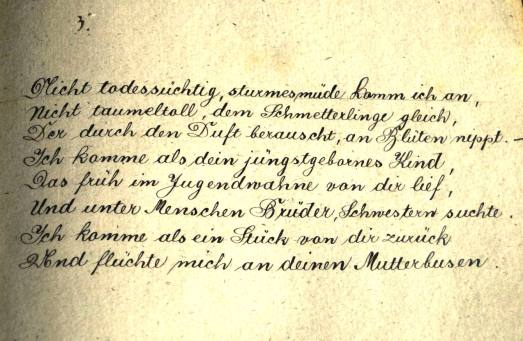 3.
Nicht todessüchtig, sturmesmüde komm ich an,
Nicht taumeltoll, dem Schmetterlinge gleich,
Der durch den Duft berauscht, an Blüten nippt. —
Ich komme als dein jüngstgebornes Kind,
Das früh im Jugendwahne von dir lief,
Und unter Menschen Brüder, Schwestern suchte.
Ich komme als ein Stück von dir zurück
Und flüchte mich an deinen Mutterbusen.